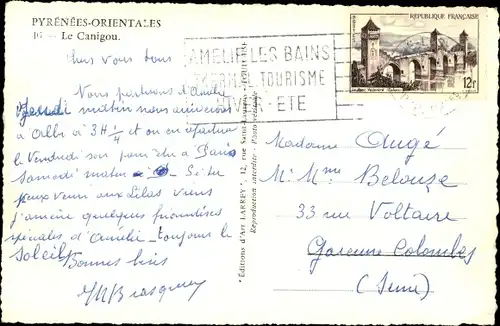 PYRÉNÉES-ORIENTALES
Le Canigou.
Chers vous tous
Nous partirons d'Amélie
Jeudi matin nous arriverons
à Albi à 3H 1/4 et on en repartira
le Vendredi soir pour être à Paris
Samedi matin Si tu
peux venir aux Lilas viens
j'amène quelques friandises
spéciales d'Amélie toujours le
Soleil
Bonnes bises
AMELIE LES BAINS
THERMAL TOURISME
HIVER - ETE
RÉPUBLIQUE FRANÇAISE
12f
Editions d'Art LARREY, 12, rue Saint-
Reproduction interdite - Photo véritable
Madame Augé
M. Mme Belouze
33 rue Voltaire
Garenne Colombes
(Seine)